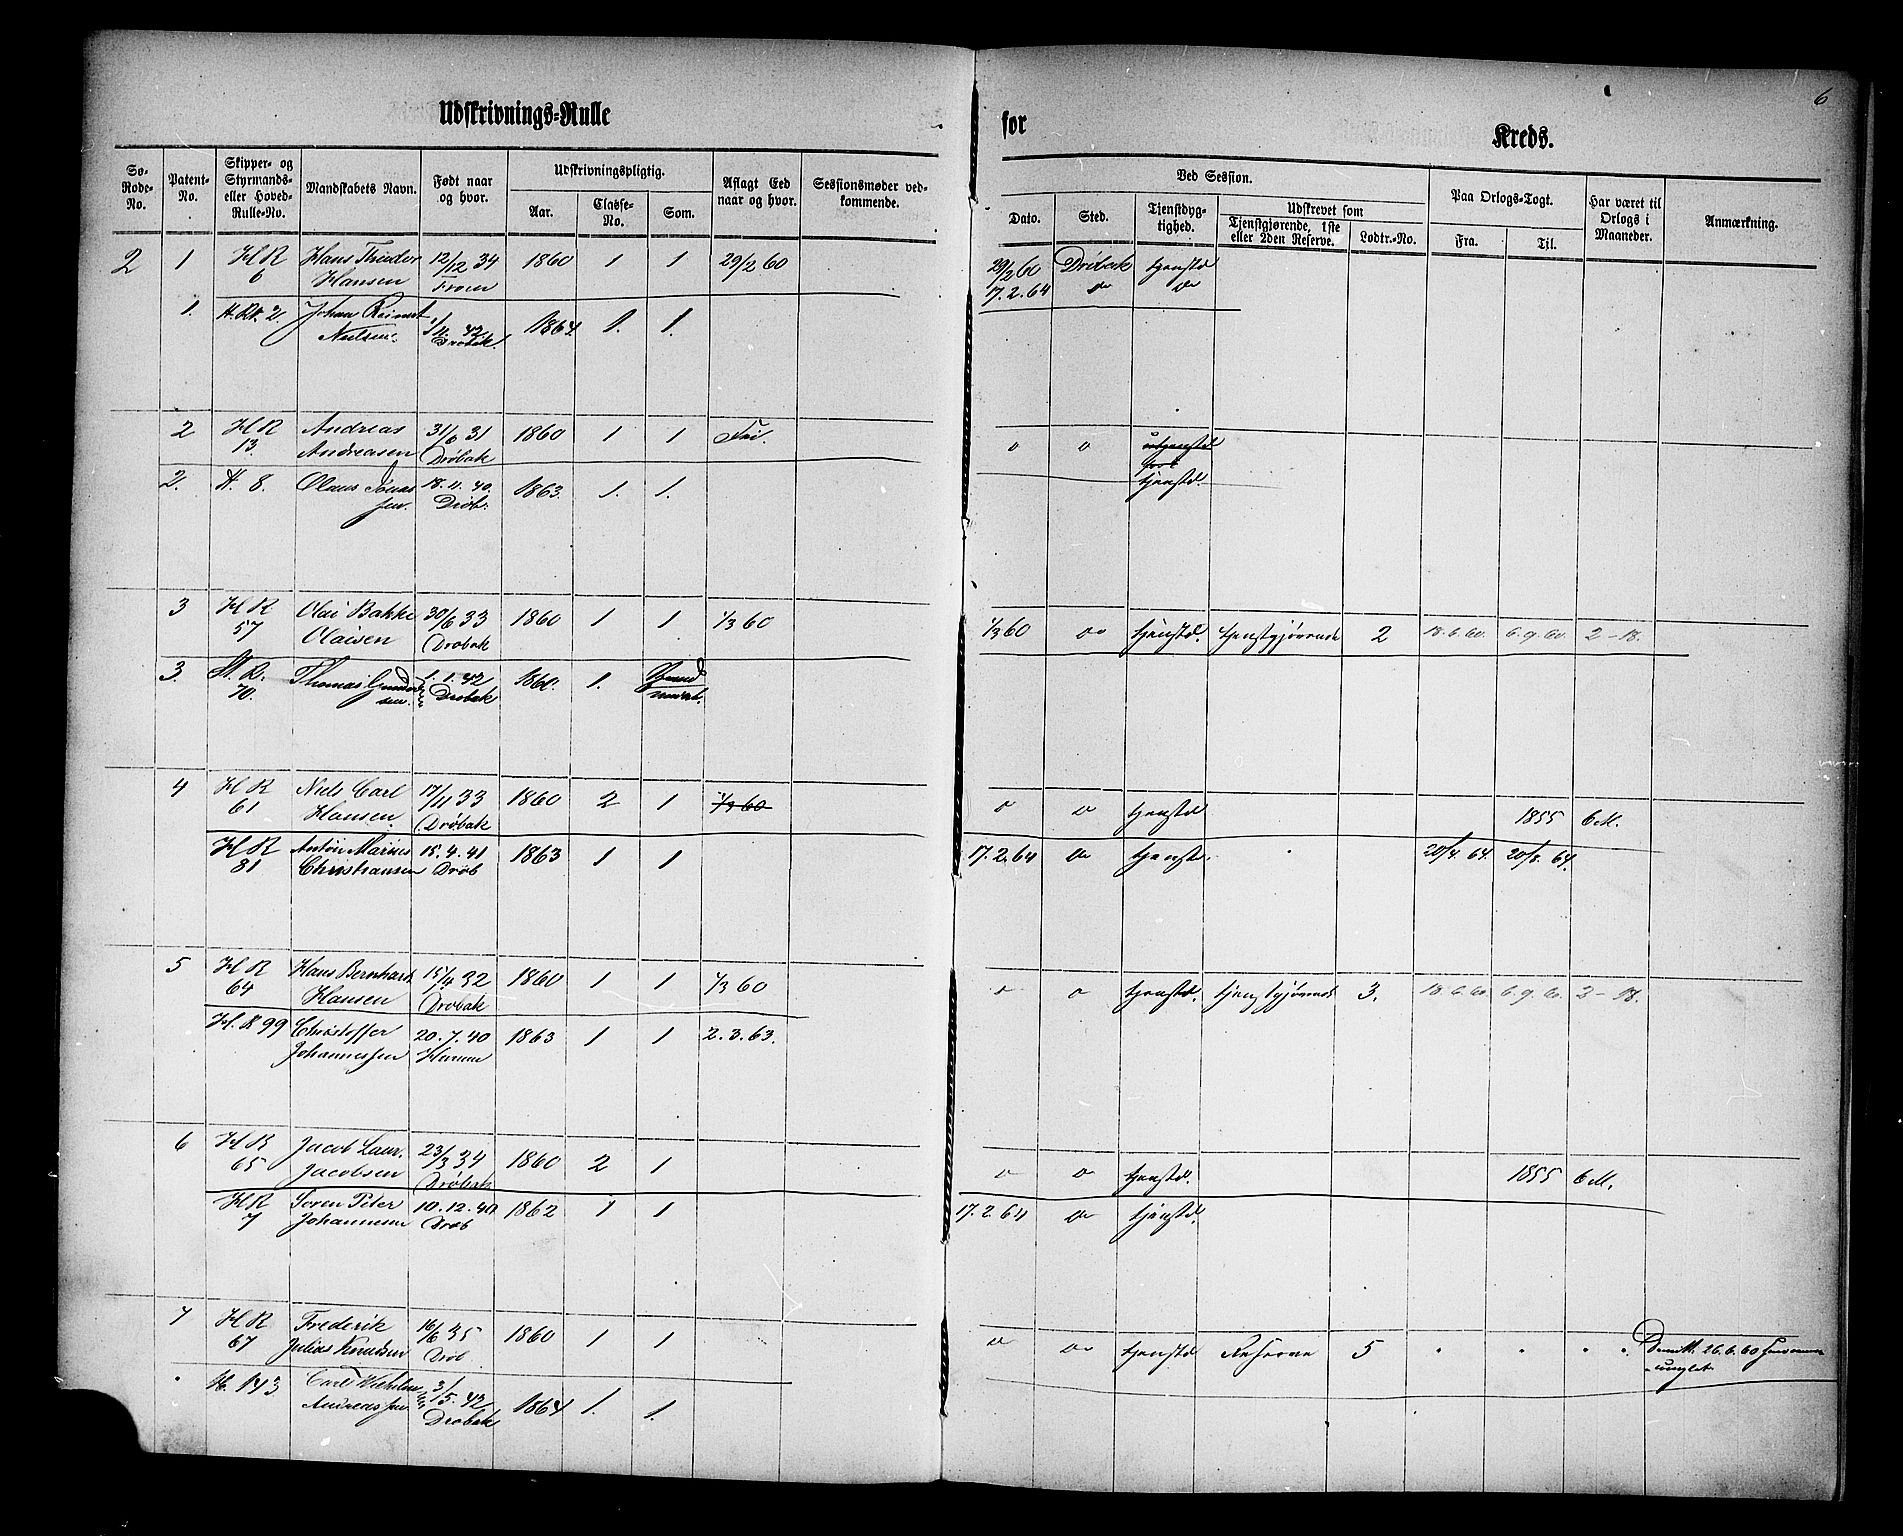 6
Udskrivnings-Rulle
for
Kreds.
Sø-Rode-No.
Patent-No.
Skipper- og Styrmands- eller Hoved-Rulle-No.
Mandskabets Navn.
Født naar og hvor.
Udskrivningspligtig.
Aar.
Classe-No.
Som.
Aflagt Eed naar og hvor.
Sessionsmøder vedkommende.
Ved Session.
Dato.
Sted.
Tjenstdygtighed.
Udskrevet som
Tjenstgjørende, 1ste eller 2den Reserve.
Lodtr.-No.
Paa Orlogs-Togt.
Fra.
Til.
Har været til Orlogs i Maaneder.
Anmærkning.
2 1 H R 6 Hans Hansen 12/12 34 1860 1 1 29/2 60 29/2 60 Dröbak tjenstd
17.2.64 do do
1. 2. Johan Reinert Nielsen. 42 Dröbak. 1864 1. 1.
2 H R 13. Andreas Andreasen 31 Dröbak 1860 1 1 o o tjenstd.
2. H. 8. Olaus Jonas sen. 18.11.40. Dröb. 1863. 1. 1.
3 H R 57 Olai Bakke Olaisen 30/6 33 Dröbak 1860 1 1 1/3 60 1/3 60 do tjenstd. tjenstgjörende 2 18.6.60. 6.9.60. 2-18.
3. H. R. 70. Thomas Gunder sen. 1.1.42 Dröbak 1860. 1.
4 H R 61 Niels Carl Hansen 17/11 33 Dröbak 1860 2 1 1/3 60 o o tjenstd 1855 6 M.
H R 81 Anton Marius Christiansen 15.4.41 Dröb 1863 1 1 17.2.64 do tjenstd. 20/4.64. 20/8.64.
5 H R 64 Hans Bernhard Hansen 15/4 32 Dröbak 1860 1 1 1/3 60 o o tjenstd. tjenstgjörende 3. 18.6.60. 6.9.60. 2-18.
H. R 99 Christoffer Johannessen 20.7.40 Hurum 1863 1 1 2.3.63.
6 H R 65 Jacob Laur. Jacobsen 23/3 34 Dröbak 1860 2 1 o o tjenstd. 1855 6 M.
H R 7 Soren Peter Johannesen 10.12.40 Dröb 1862 1 1 17.2.64 do tjenstd.
7 H R 67 Frederik Julius Knudsen 16/6 35 Dröb 1860 1 1 o do tjenstd Reserve 5 " " " " 26.6.60
H. 143 Carl Wilhelm Andreassen 3/5.42 Dröbak 1864 1. 1.